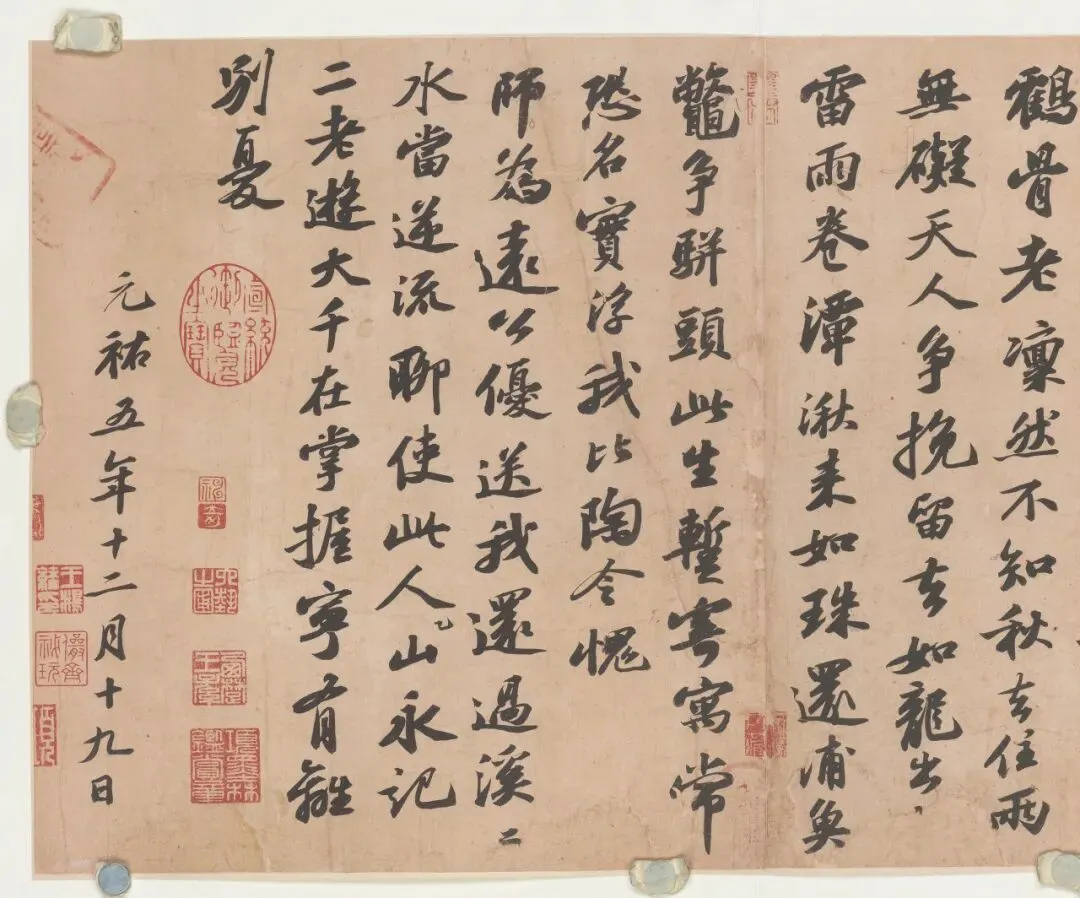 鶴骨老凜然不知秋去住兩
無礙天人爭挽留去如龍出
雷雨卷潭湫来如珠還浦魚
鼈爭駢頭此生暫寄寓常
恐名實浮我比陶令愧
師為遠公優送我還過溪二
水當逆流聊使此人山永記
二老遊大千在掌握寧有離
別憂
宣統御覽之寶
項墨林鑑賞章
元祐五年十二月十九日
儼齋秘玩